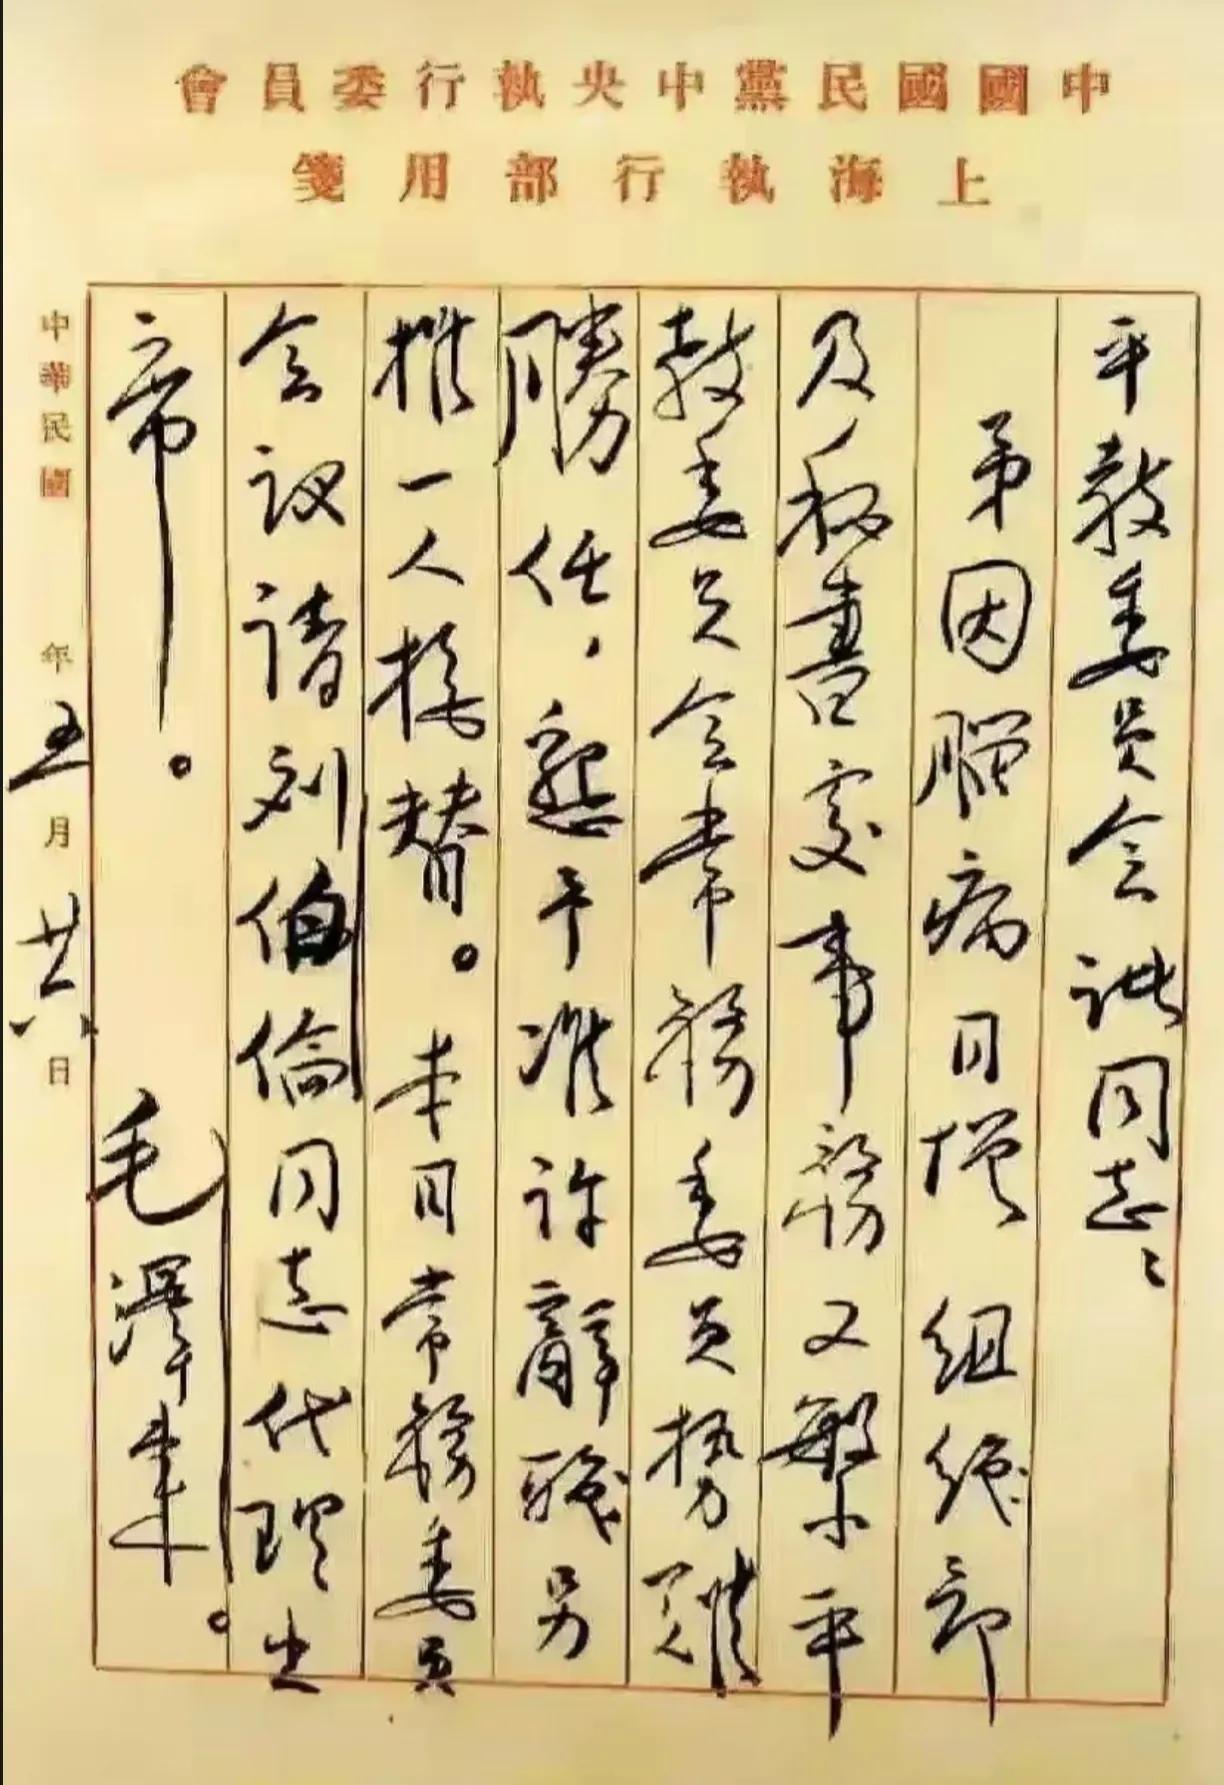 中國國民黨中央執行委員會
上海執行部用箋
平教委員会诸同志：
弟因腦病日增組織部
及秘書处事務又繁平
教委員会常務委員勢难
勝任，懇予准許辭職另
推一人接替。本日常務委員
会议請刘伯倫同志代理出
席。
毛澤東。
中華民國 年五月廿六日